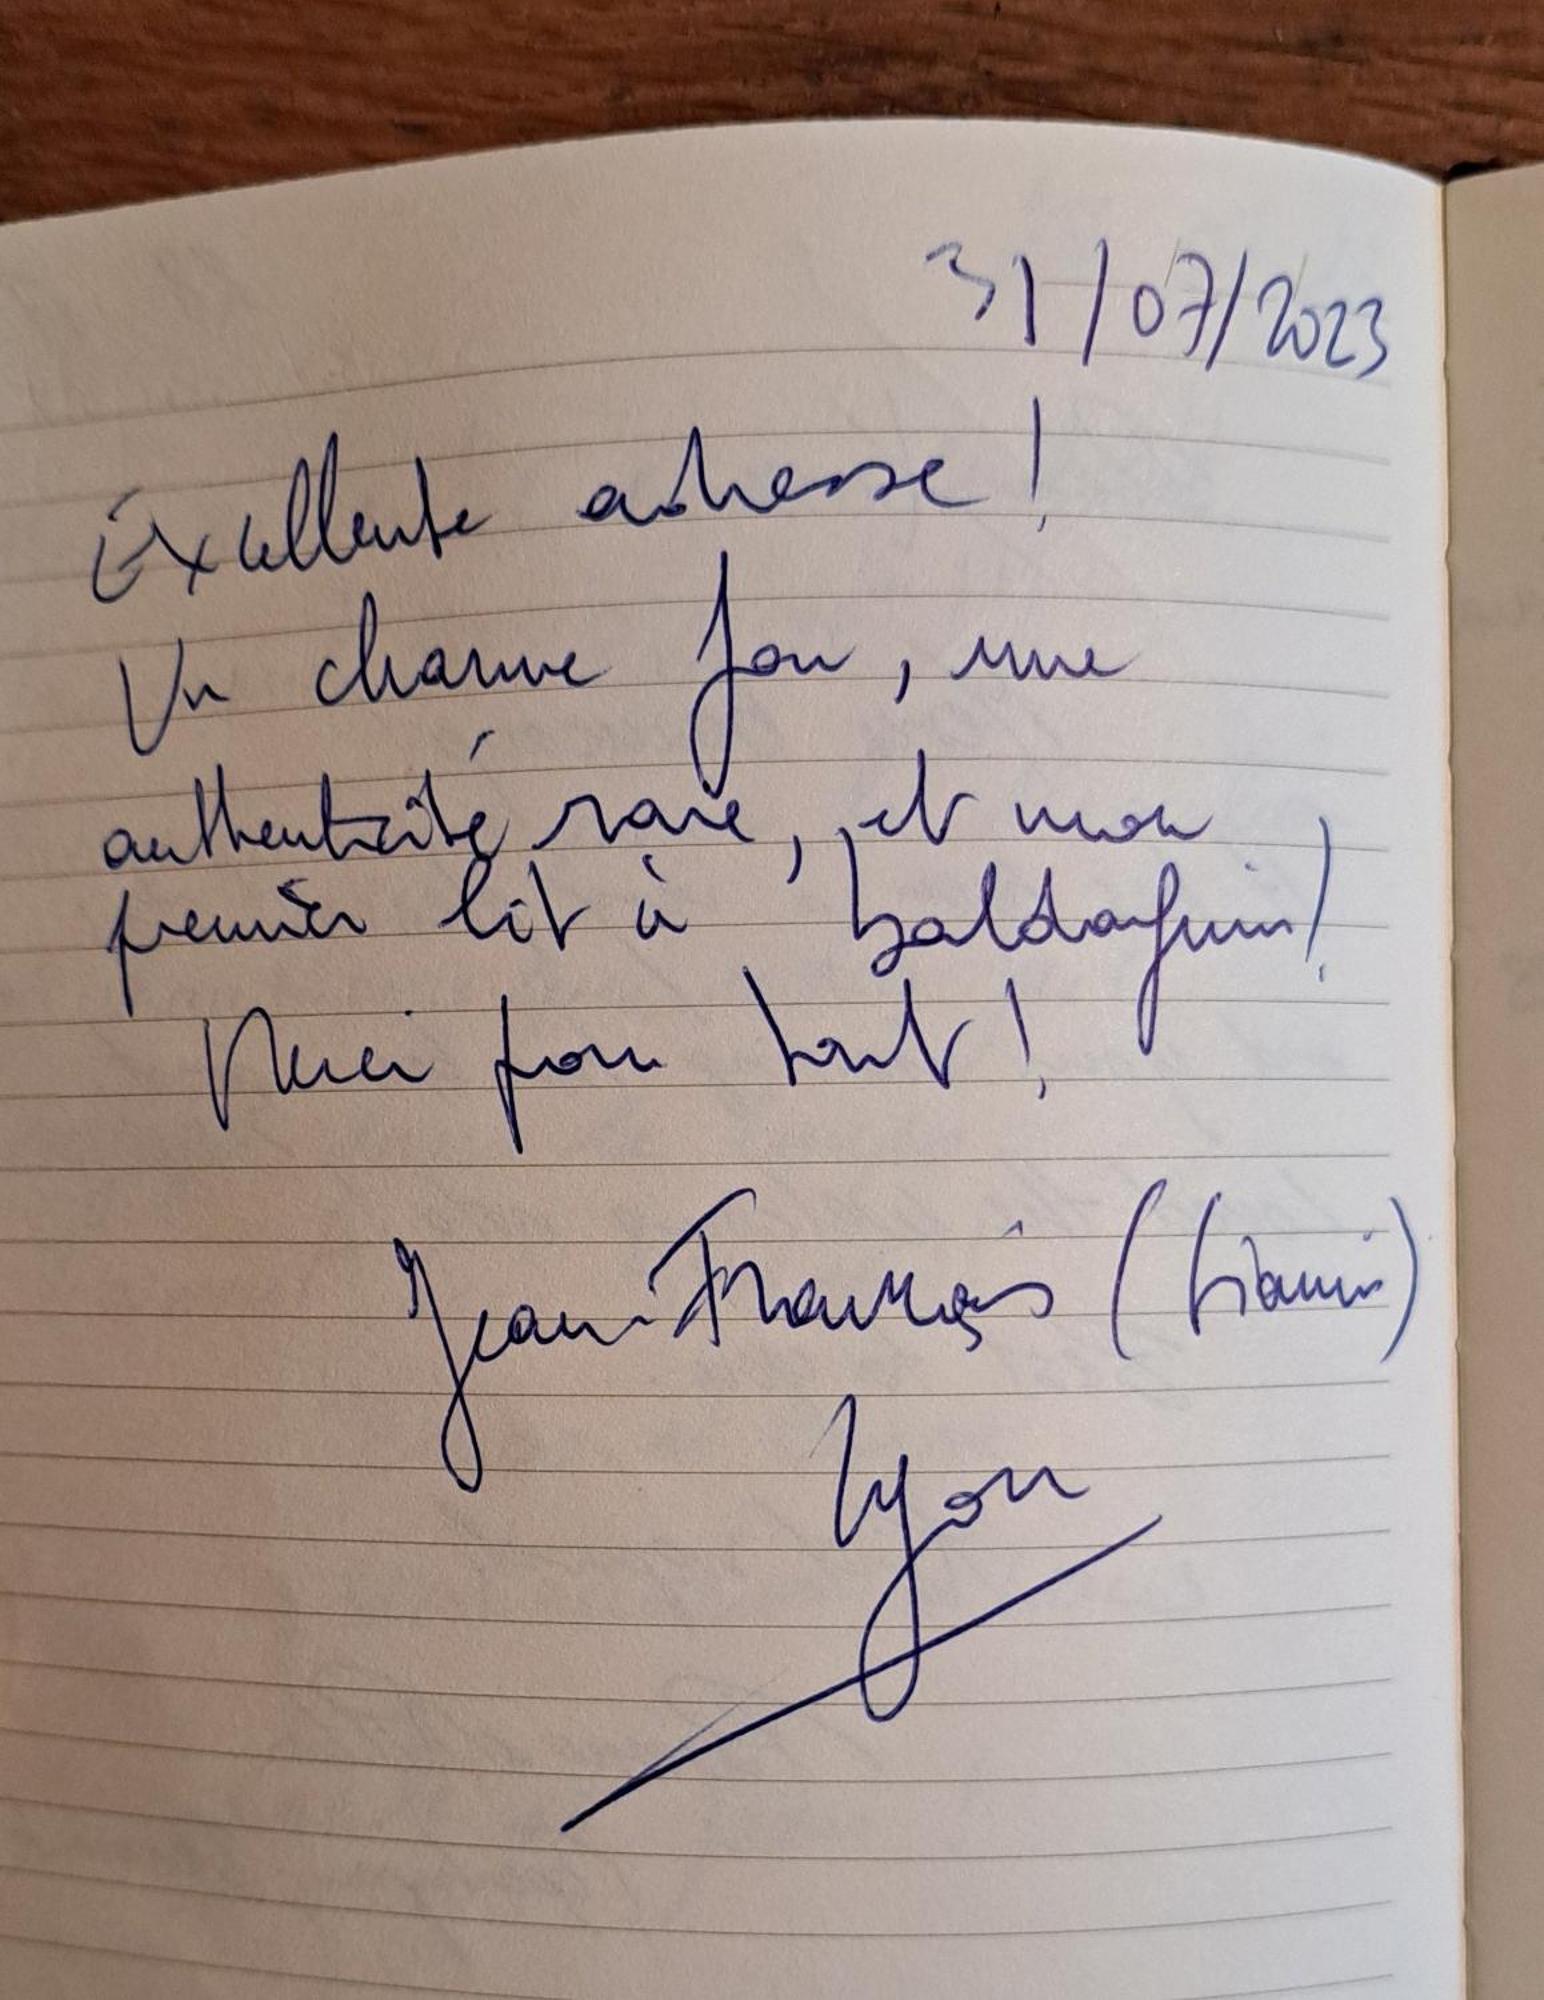 31/07/2023
Excellente adresse !
Un charme fou, une
authenticité rare, et mon
premier lit à baldaquin !
Merci pour tout !
Jean-François
Lyon